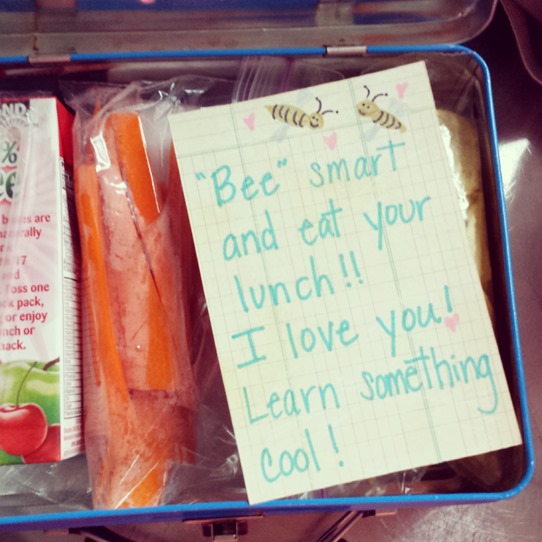 "Bee" smart
and eat your
lunch!!
I love you!
Learn something
cool!
%
17
Toss one
pack,
or enjoy